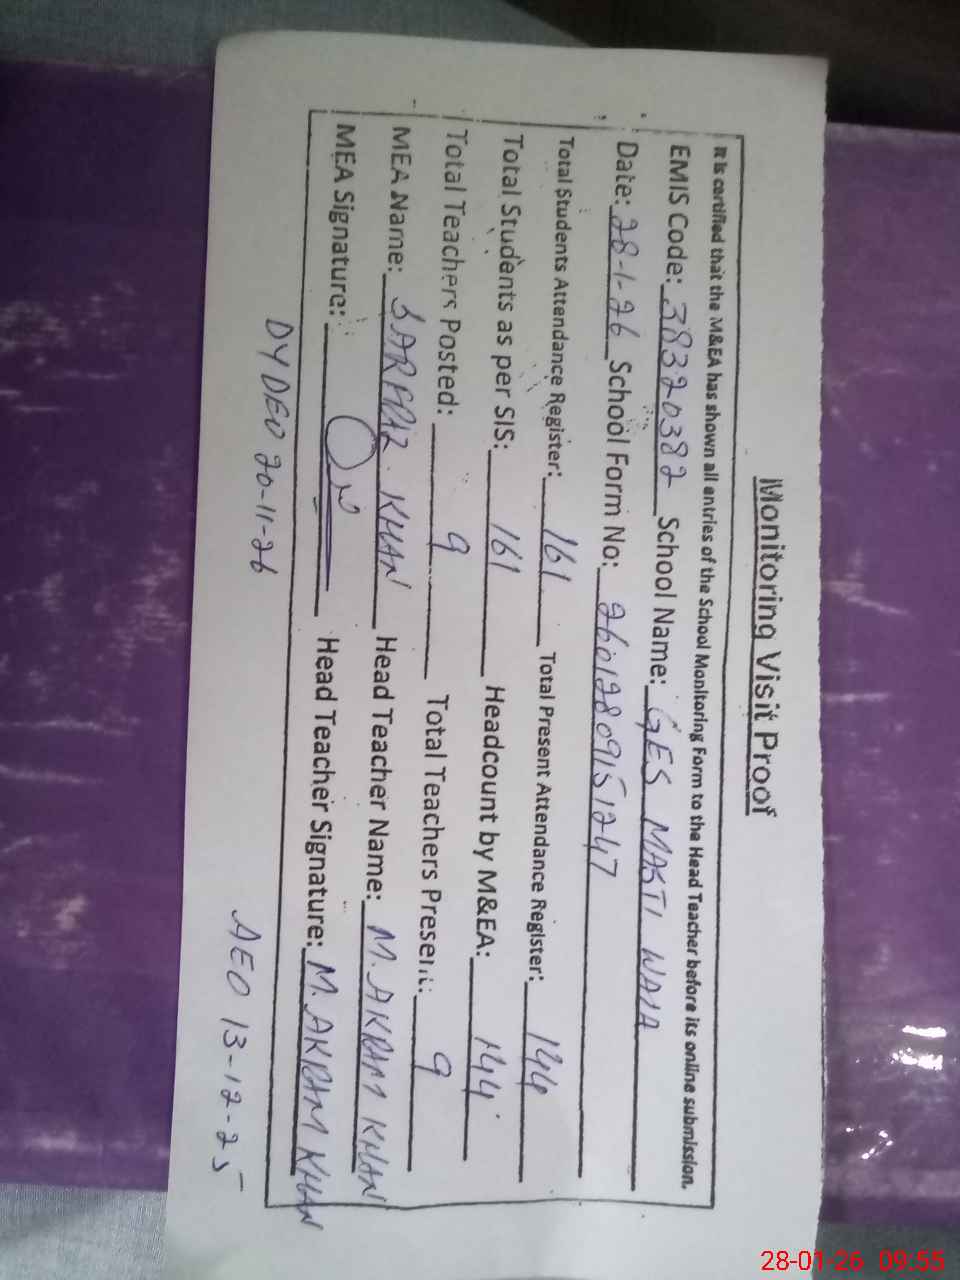 Monitoring Visit Proof
It is certified that the M&EA has shown all entries of the School Monitoring Form to the Head Teacher before its online submission.
EMIS Code: 38320382 School Name: GES MASTI WALA
Date: 28-1-26 School Form No: 26012809151247
Total Students Attendance Register: 161 Total Present Attendance Register: 144
Total Students as per SIS: 161 Headcount by M&EA: 144
Total Teachers Posted: 9 Total Teachers Present: 9
MEA Name: SARFRAZ KHAN Head Teacher Name: M. AKRAM KHAN
MEA Signature: Head Teacher Signature: M. AKRAM KHAN
DY DEO 20-11-26 AEO 13-12-25
28-01-26 09:55